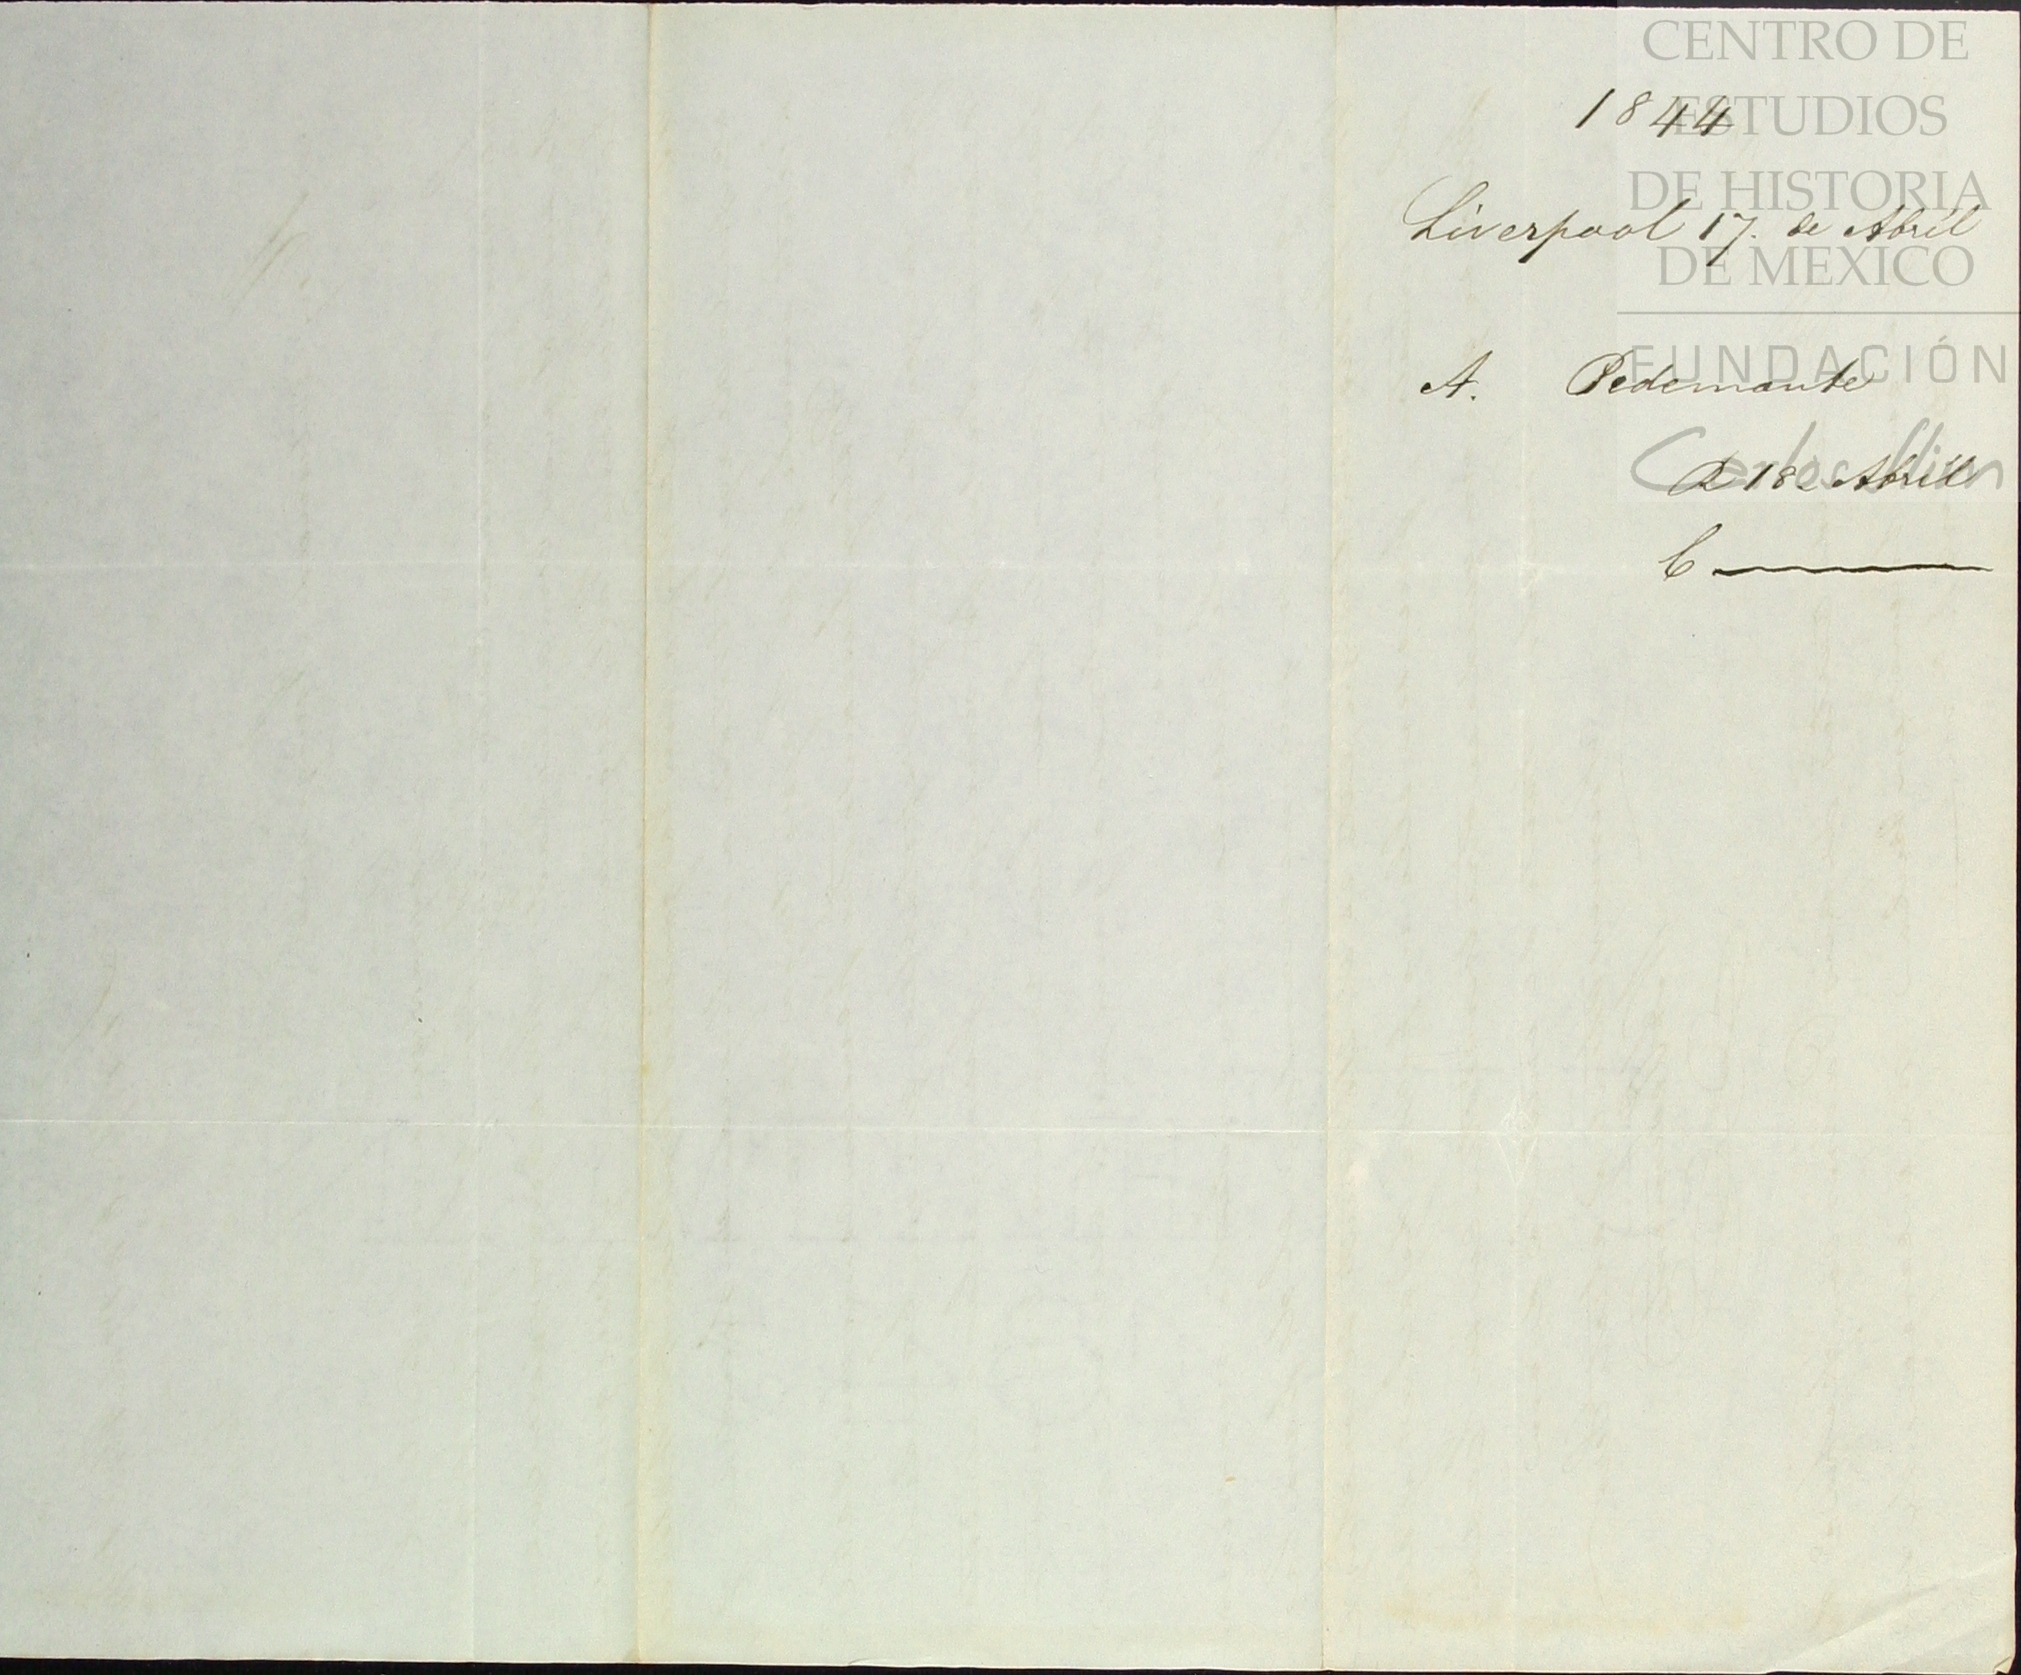 CENTRO DE
ESTUDIOS
DE HISTORIA
DE MEXICO
FUNDACIÓN
Carlos Slim
1844
Liverpool 17. de Abril
A. Pedemonte
R 18. Abril
C